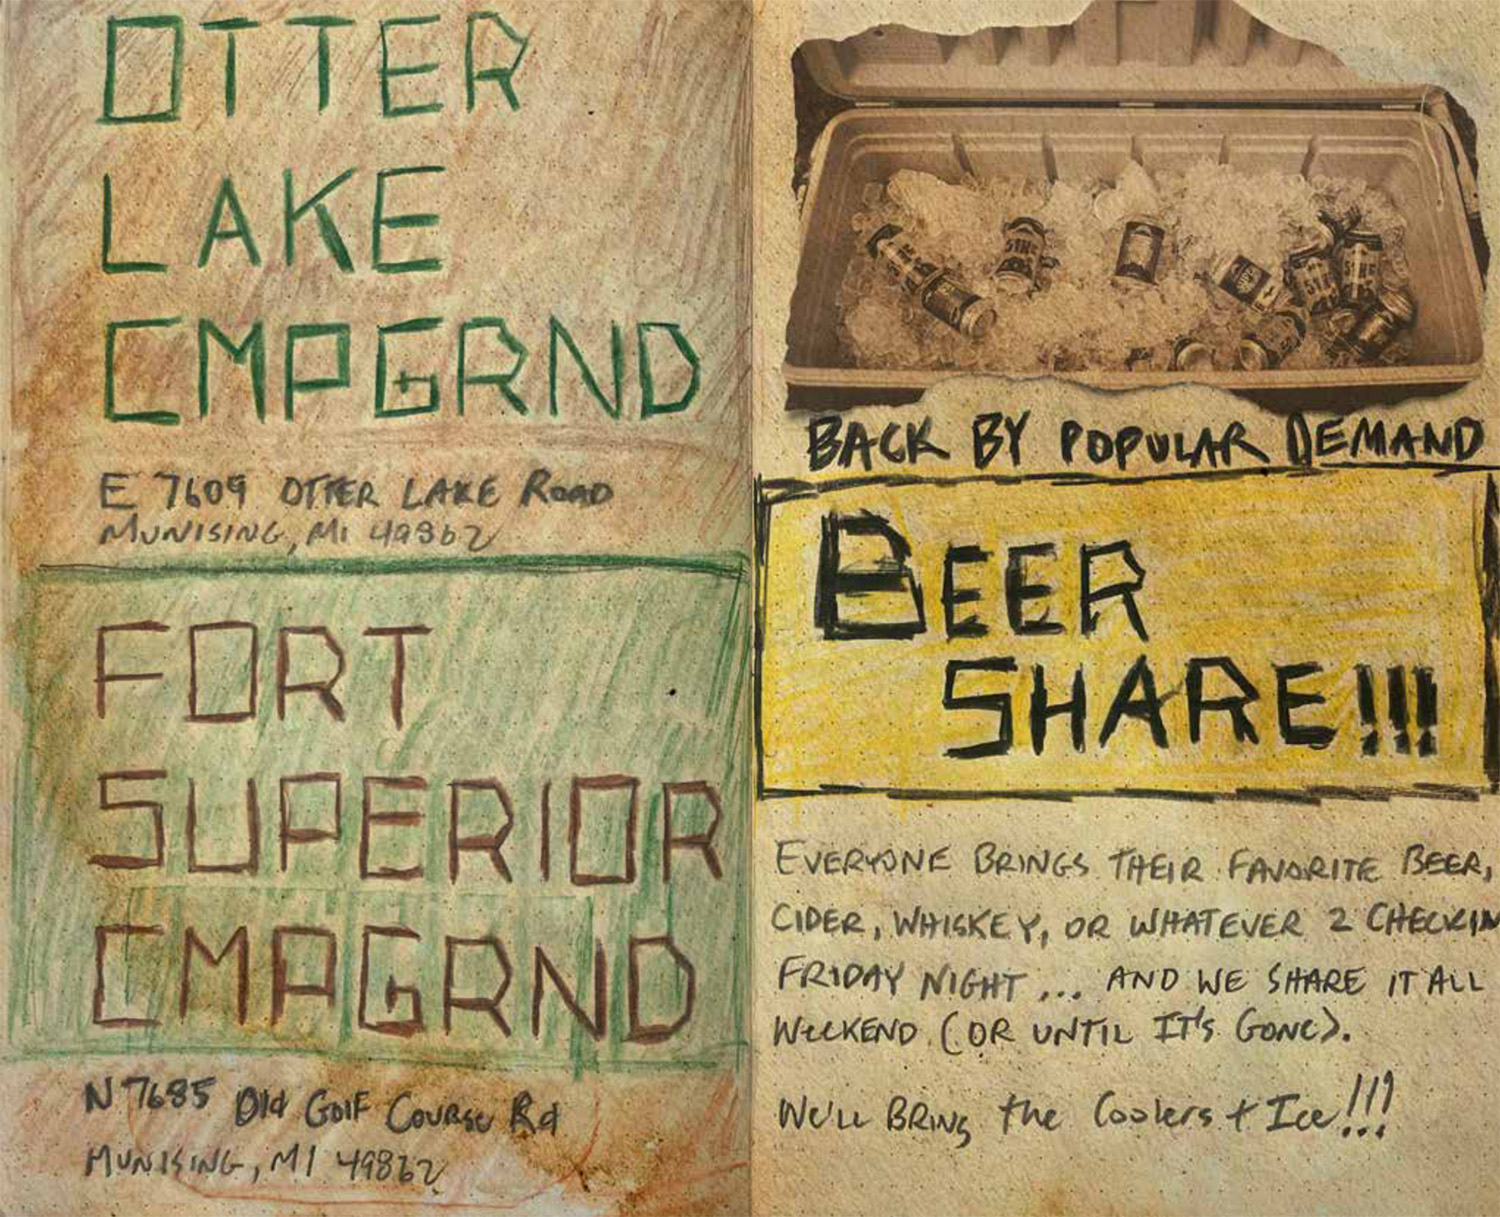 OTTER
LAKE
CMPGRND
E 7609 OTTER LAKE ROAD
MUNISING, MI 49862
FORT
SUPERIOR
CMPGRND
N 7685 Old GOlF COURSE Rd
MUNISING, MI 49862
BACK BY POPULAR DEMAND
BEER
SHARE!!!
EVERYONE BRINGS THEIR FAVORITE BEER,
CIDER, WHISKEY, OR WHATEVER 2 CHECKIN
FRIDAY NIGHT ... AND WE SHARE IT ALL
WEEKEND (OR UNTIL IT'S GONE).
WE'LL BRING the Coolers + Ice!!!